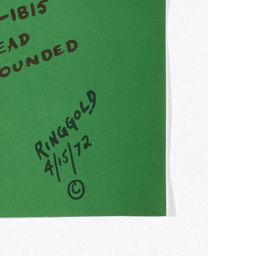 -1815
EAD
OUNDED
RINGGOLD
4/15/72
©